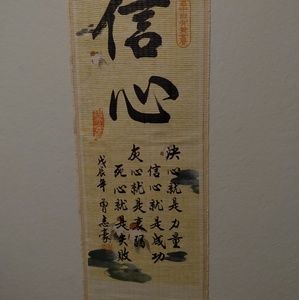 信心
決心就是力量
信心就是成功
灰心就是衰弱
死心就是失敗
戊辰年